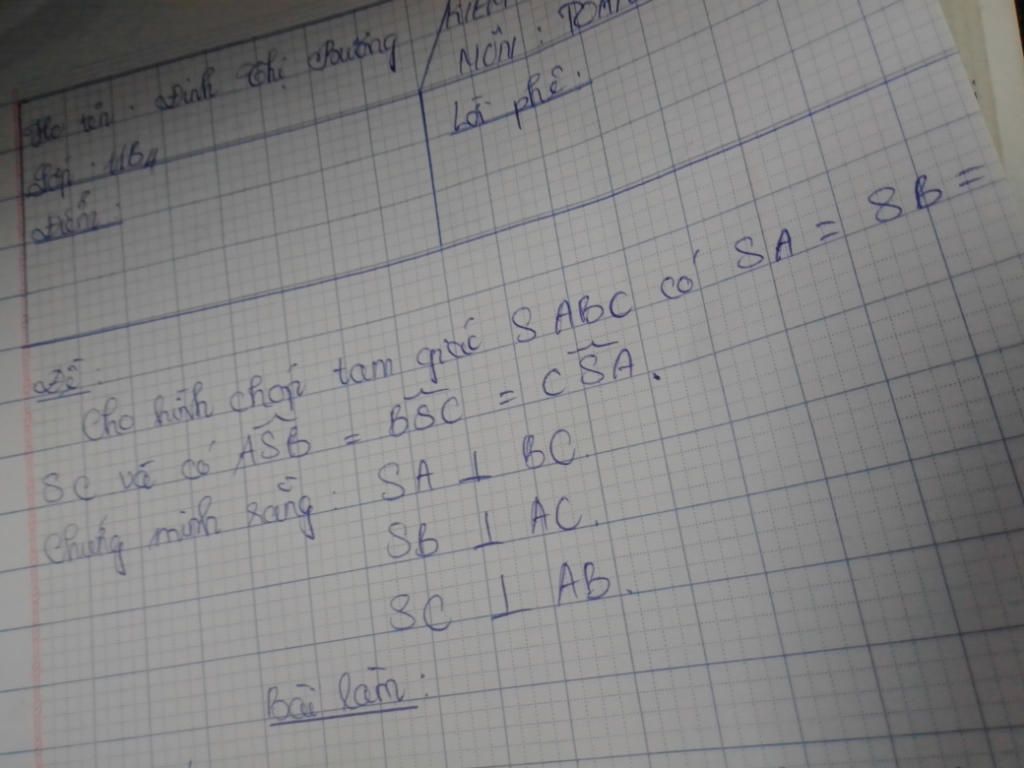 Họ tên: Đinh Thị Phương
Lớp: 11B4
Điểm:
MÔN: TOÁN
Lời phê:
Đề:
Cho hình chóp tam giác SABC có SA = SB =
SC và có ASB = BSC = CSA.
Chứng minh rằng: SA ⊥ BC.
SB ⊥ AC.
SC ⊥ AB.
Bài làm: